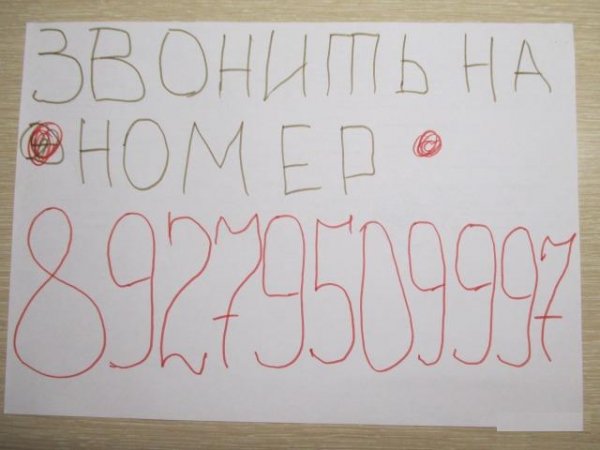 ЗВОНИТЬ НА
НОМЕР
89279509997